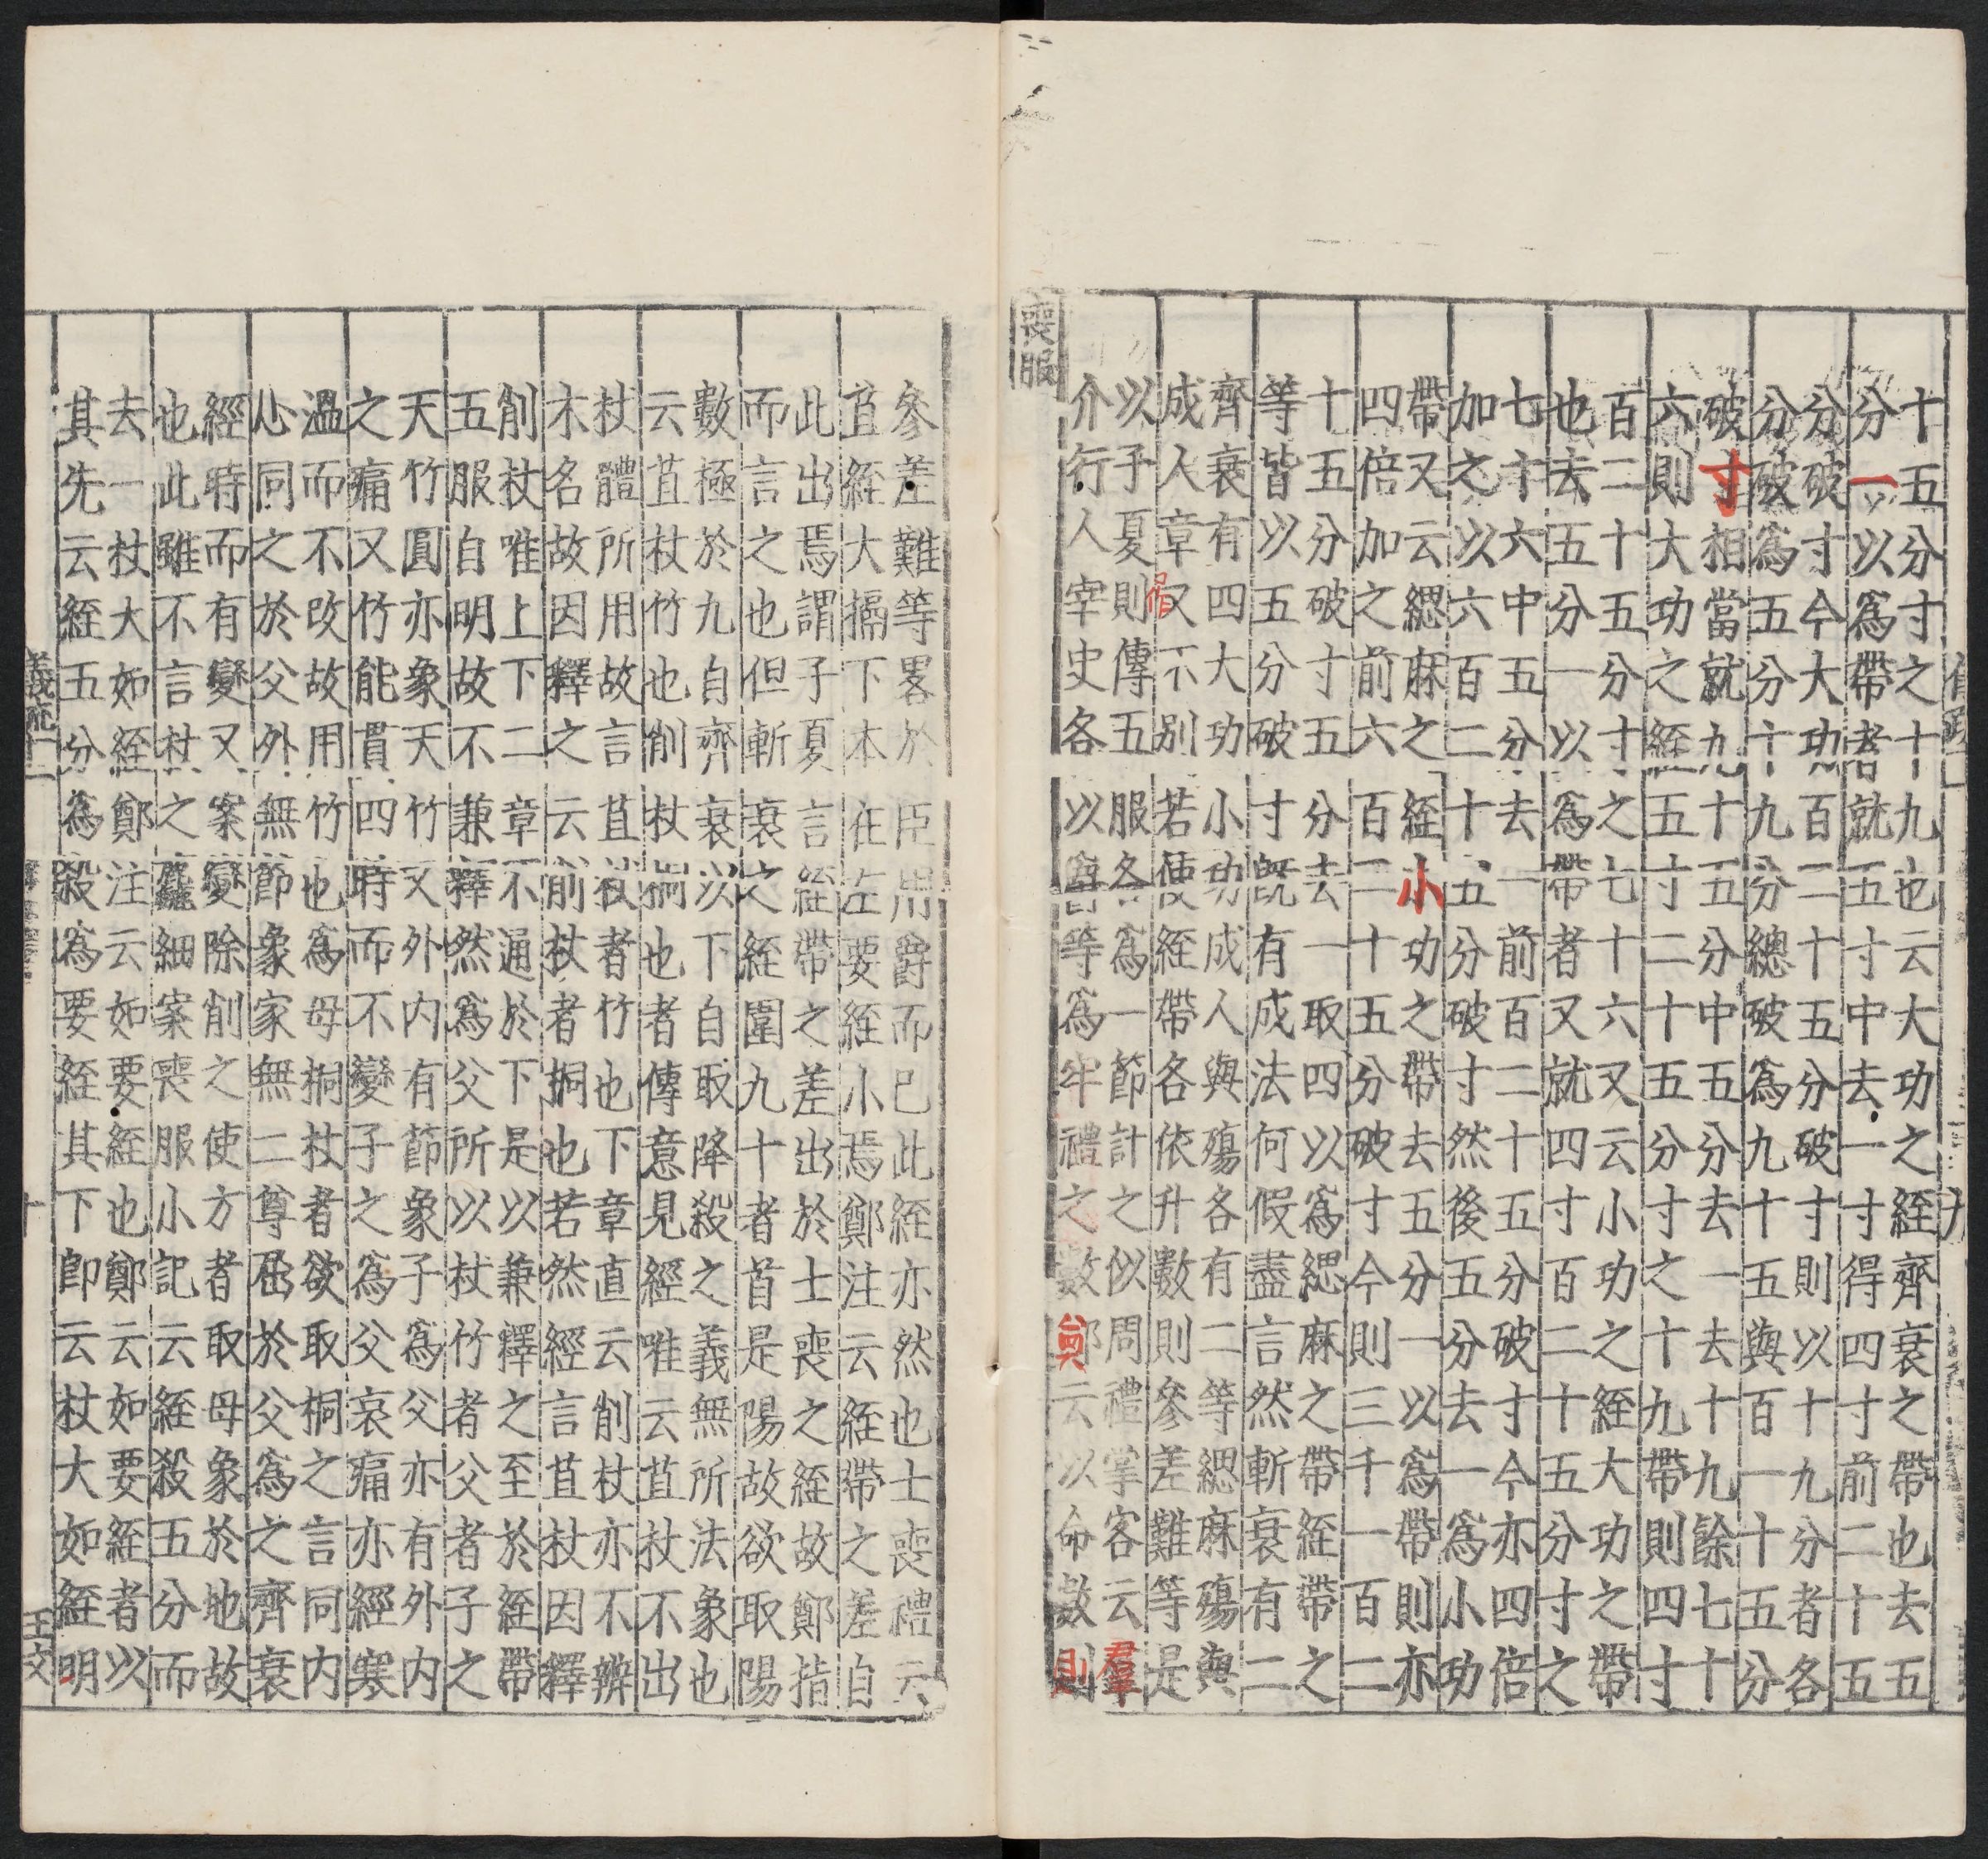 十五分寸之十九也云大功之絰齊衰之帶也去五
分一以爲帶者就五寸中去一寸得四寸前二十五
分破寸今大功百二十五分破寸則以十九分者各
分破爲五分十九分總破爲九十五與百一十五分
破寸相當就九十五分中五分去一去十九餘七十
六則大功之絰五寸二十五分寸之十九帶則四寸
百二十五分寸之七十六又云小功之絰大功之帶
也去五分一以爲帶者又就四寸百二十五分寸之
七十六中五分去一前百二十五分破寸今亦四倍
加之以六百二十五分破寸然後五分去一爲小功
帶又云緦麻之絰小功之帶去五分一以爲帶則亦
四倍加之前六百二十五分破寸今則三千一百二
十五分破寸五分去一取四以爲緦麻之帶絰帶之
等皆以五分破寸既有成法何假盡言然斬衰有二
齊衰有四大功小功成人與殤各有二等緦麻殤與
成人章又不別若使絰帶各依升數則參差難等是
以子夏則傳五服各爲一節計之似周禮掌客云羣
介行人宰史各以爵等爲牢禮之數鄭云以命數則
喪服
參差難等畧於臣用爵而已此絰亦然也士喪禮云
苴絰大搹下本在左要絰小焉鄭注云絰帶之差自
此出焉謂子夏言絰帶之差出於士喪之絰故鄭指
而言之也但斬衰之絰圍九十者首是陽故欲取陽
數極於九自齊衰以下自取降殺之義無所法象也
云苴杖竹也削杖桐也者傳意見經唯云苴杖不出
杖體所用故言苴杖者竹也下章直云削杖亦不辨
木名故因釋之云削杖者桐也若然經言苴杖因釋
削杖唯上下二章不通於下是以兼釋之至於絰帶
五服自明故不兼釋然爲父所以杖竹者父者子之
天竹圓亦象天竹又外內有節象子爲父亦有外內
之痛又竹能貫四時而不變子之爲父哀痛亦經寒
溫而不改故用竹也爲母桐杖者欲取桐之言同內
心同之於父外無節象家無二尊屈於父爲之齊衰
經時而有變又案變除削之使方者取母象於地故
也此雖不言杖之麤細案喪服小記云絰殺五分而
去一杖大如絰鄭注云如要絰也鄭云如要絰者以
其先云絰五分爲殺爲要絰其下即云杖大如絰明
十
王文